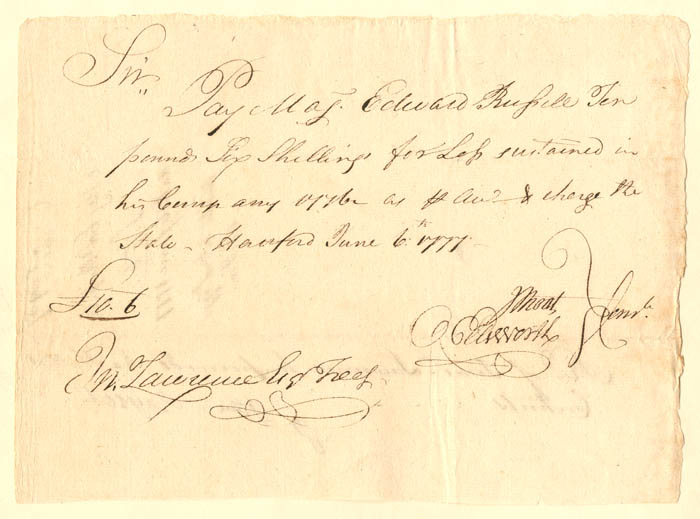 Sir,,
Pay Maj. Edward Russell Ten
pounds Six Shillings for Loss sustained in
his Company 1776 as p Acct & charge the
State - Hartford June 6th 1777 -
£10. 6
J Root
O Ellsworth
Comte
Jn. Lawrence Esq Treasr